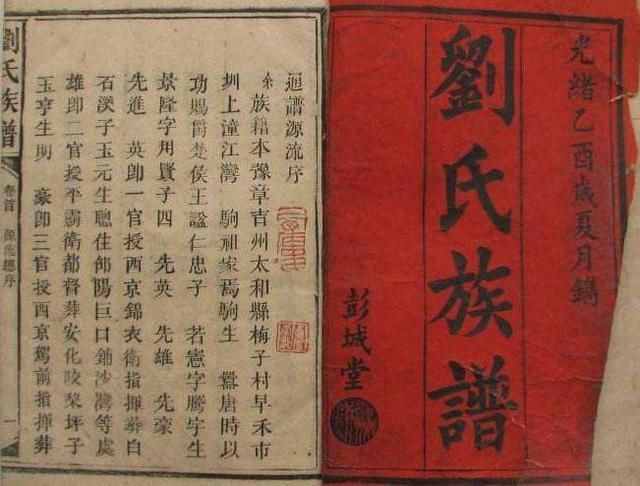 光緒乙酉歲夏月鐫
劉氏族譜
彭城堂
通譜源流序
余族籍本豫章吉州太和縣梅子村早禾市
圳上潼江灣　駒祖家焉駒生　翥唐時以
功賜爵楚侯王諡仁忠子　若憲字騰宇生
景隆字用賢子四　先英　先雄　先豪
先進　英郎一官授西京錦衣衛指揮葬白
石漢子玉元生聰住邵陽巨口鋪沙灣等處
雄郎二官授平霸衛都督葬安化咬棃坪子
玉亨生明　豪郎三官授西京駕前指揮葬
劉氏族譜
卷首
源流總序
一